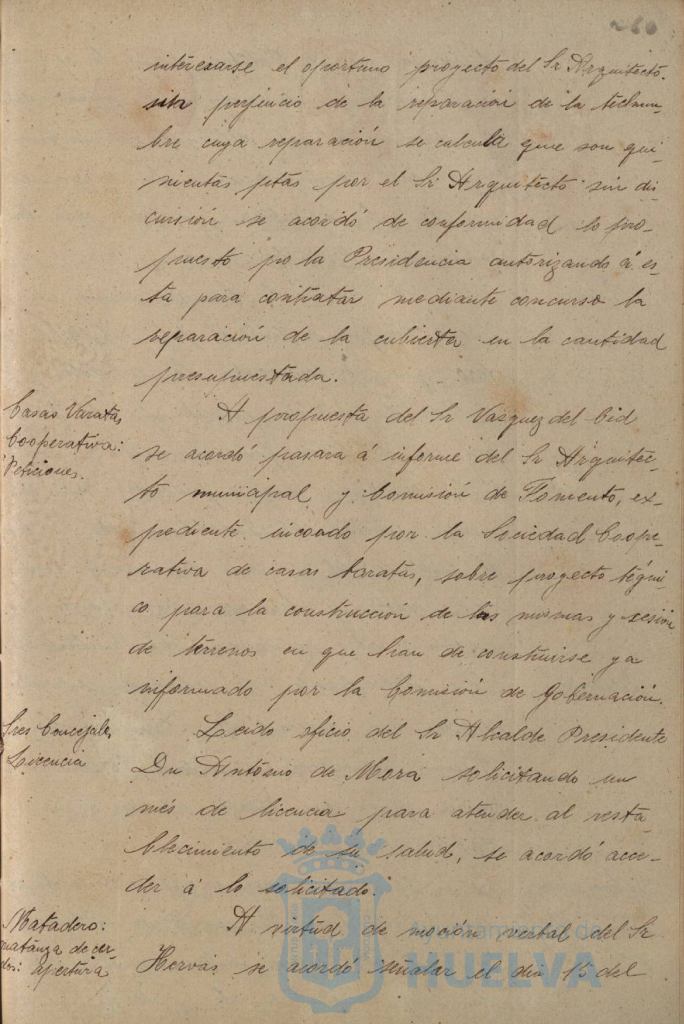 260
interesarse el oportuno proyecto del Sr Arquitecto.
sin perjuicio de la reparación de la techum-
bre cuya reparación se calcula que son qui-
nientas ptas por el Sr Arquitecto sin di-
cursión se acordó de conformidad lo pro-
puesto po la Presidencia autorizando á es-
ta para contratar mediante concurso la
reparación de la cubierta en la cantidad
presupuestada.
Casas Varatas
Cooperativa:
Peticiones.
A propuesta del Sr Vazquez del Cid
se acordó pasara á informe del Sr Arquitec-
to municipal y Comisión de Fomento, ex-
pediente incoado por la Sociedad Coope-
rativa de casas baratas, sobre proyecto tégni-
co para la construcción de las mismas y xesión
de terrenos en que han de construirse ya
informado por la Comisión de Gobernación.
Sres Concejales
Licencia
Leido oficio del Sr Alcalde Presidente
Dn Antonio de Mora solicitando un
més de licencia para atender al resta-
blecimiento de su salud, se acordó acce-
der á lo solicitado.
Matadero:
matanza de cer-
dos: apertura
A virtud de moción verbal del Sr
Hervás se acordó señalar el dia 15 del
Ayuntamiento de
HUELVA